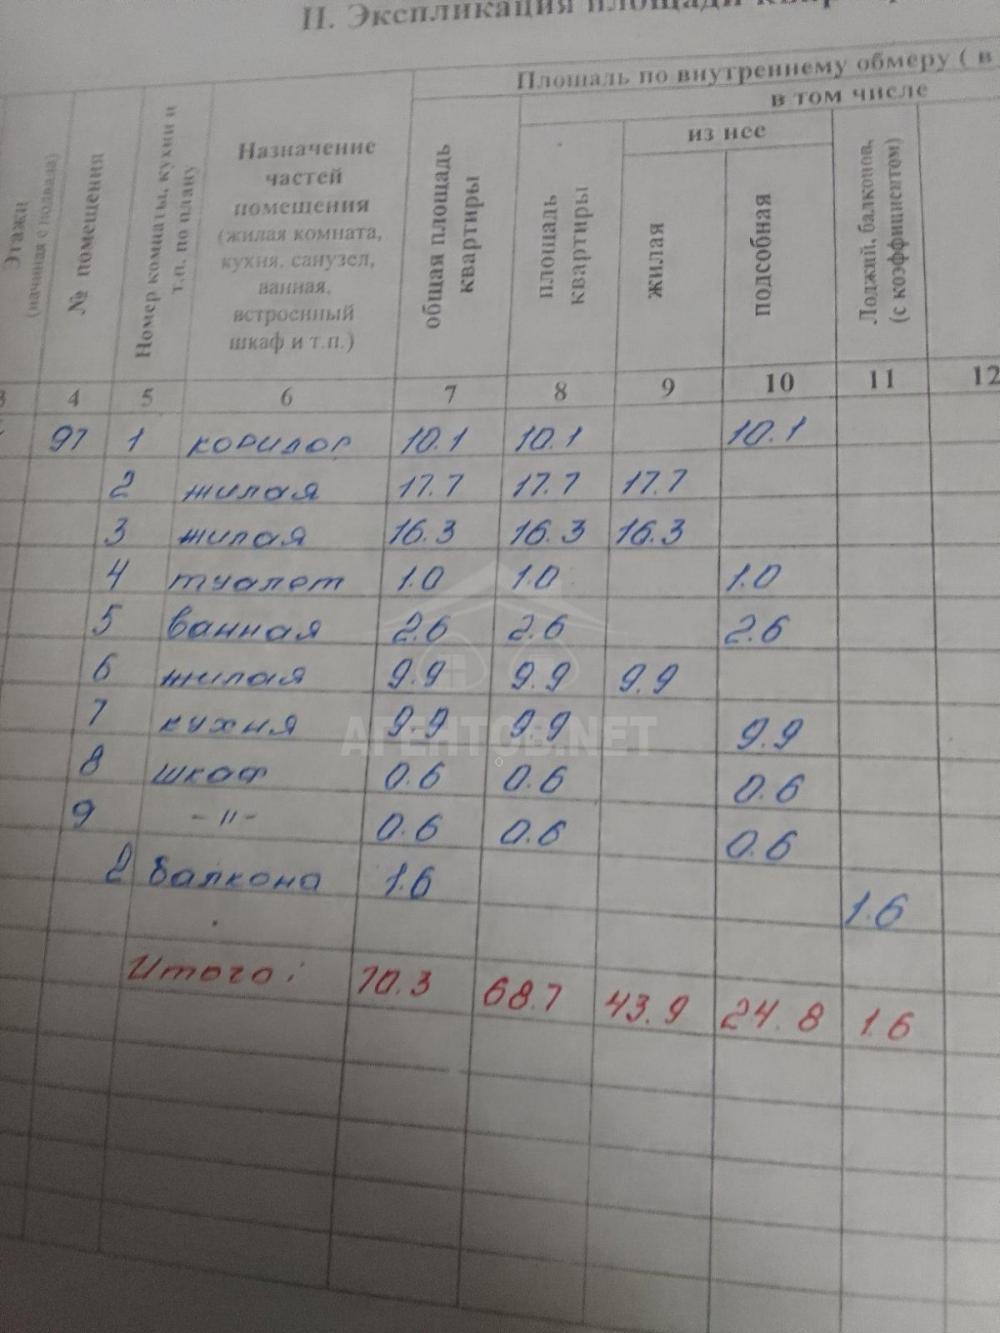 II. Экспликация площади квартиры
Площадь по внутреннему обмеру ( в
в том числе
из нее
Этажи
(начиная с подвала)
№ помещения
Номер комнаты, кухни и
т.п. по плану
Назначение
частей
помещения
(жилая комната,
кухня, санузел,
ванная,
встроенный
шкаф и т.п.)
общая площадь
квартиры
площадь
квартиры
жилая
подсобная
Лоджий, балконов,
(с коэффициентом)
3 4 5 6 7 8 9 10 11 12
97 1 коридор 10.1 10.1 10.1
2 жилая 17.7 17.7 17.7
3 жилая 16.3 16.3 16.3
4 туалет 1.0 1.0 1.0
5 ванная 2.6 2.6 2.6
6 жилая 9.9 9.9 9.9
7 кухня 9.9 9.9 9.9
8 шкаф 0.6 0.6 0.6
9 -"- 0.6 0.6 0.6
2 балкона 1.6 1.6
Итого: 70.3 68.7 43.9 24.8 1.6
АГЕНТОВ.NET